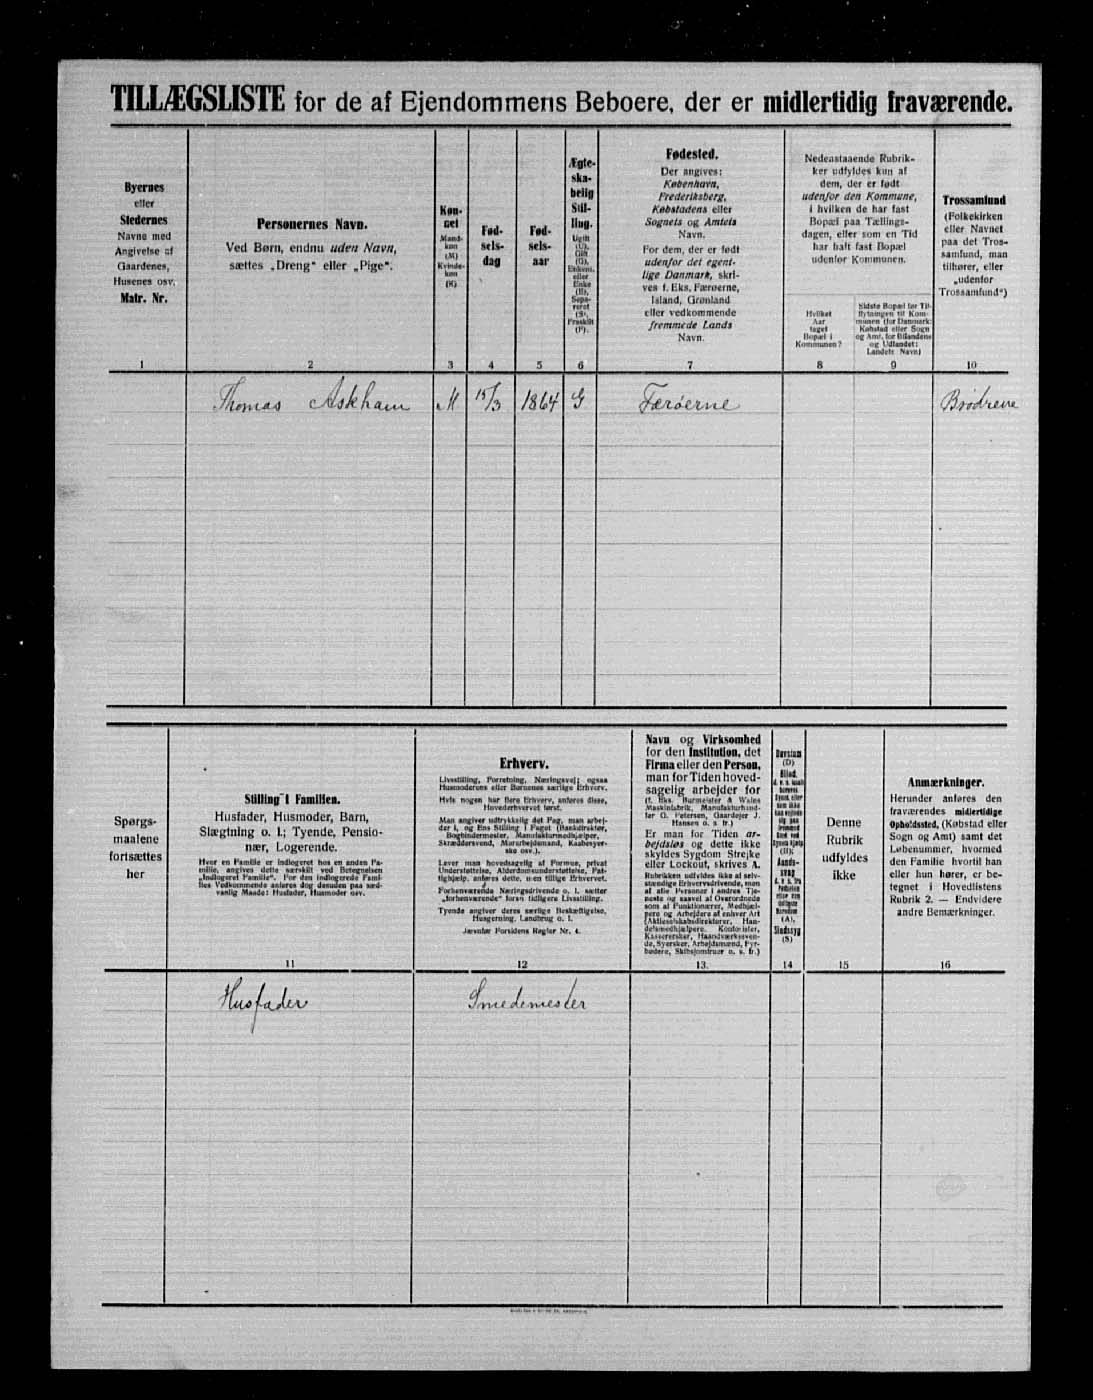 TILLÆGSLISTE for de af Ejendommens Beboere, der er midlertidig fraværende.
Byernes
eller
Stedernes
Navne med
Angivelse af
Gaardenes,
Husenes osv.
Matr. Nr.
1
Personernes Navn.
Ved Børn, endnu uden Navn,
sættes „Dreng“ eller „Pige“.
2
Køn-
net
Mand-
køn
(M)
Kvinde-
køn
(K)
3
Fød-
sels-
dag
4
Fød-
sels-
aar
5
Ægte-
ska-
belig
Stil-
ling.
Ugift
(U),
Gift
(G),
Enkem.
eller
Enke
(E),
Sepa-
reret
(S),
Fraskilt
(F).
6
Fødested.
Der angives:
København,
Frederiksberg,
Købstadens eller
Sognets og Amtets
Navn.
For dem, der er født
udenfor det egent-
lige Danmark, skri-
ves f. Eks. Færøerne,
Island, Grønland
eller vedkommende
fremmede Lands
Navn.
7
Nedenstaaende Rubrik-
ker udfyldes kun af
dem, der er født
udenfor den Kommune,
i hvilken de har fast
Bopæl paa Tællings-
dagen, eller som en Tid
har haft fast Bopæl
udenfor Kommunen.
Hvilket
Aar
taget
Bopæl i
Kommunen?
8
Sidste Bopæl før Til-
flytningen til Kom-
munen (for Danmark:
Købstad eller Sogn
og Amt, for Bilandene
og Udlandet:
Landets Navn)
9
Trossamfund
(Folkekirken
eller Navnet
paa det Tros-
samfund, man
tilhører, eller
„udenfor
Trossamfund“)
10
Thomas Askham M 15/3 1864 G Færøerne Brødrene
Spørgs-
maalene
fortsættes
her
Stilling i Familien.
Husfader, Husmoder, Barn,
Slægtning o. l.; Tyende, Pensio-
nær, Logerende.
Hvor en Familie er indlogeret hos en anden Fa-
milie, angives dette særskilt ved Betegnelsen
„Indlogeret Familie“. For den indlogerede Fami-
lies Vedkommende anføres dog desuden paa sæd-
vanlig Maade: Husfader, Husmoder osv.
11
Erhverv.
Livsstilling, Forretning, Næringsvej; ogsaa
Husmoderens eller Børnenes særlige Erhverv.
Hvis nogen har flere Erhverv, anføres disse,
Hovederhvervet først.
Man angiver udtrykkelig det Fag, man arbej-
der i, og Ens Stilling i Faget (Bankdirektør,
Bogbindermester, Manufakturmedhjælper,
Skræddersvend, Murarbejdsmand, Kaabesyer-
ske osv.).
Lever man hovedsagelig af Formue, privat
Understøttelse, Alderdomsunderstøttelse, Fat-
tighjælp, anføres dette, men tillige Erhvervet.
Forhenværende Næringsdrivende o. l. sætter
„forhenværende“ foran tidligere Livsstilling.
Tyende angiver deres særlige Beskæftigelse,
Husgerning, Landbrug o. l.
Jævnfør Forsidens Regler Nr. 4.
12
Navn og Virksomhed
for den Institution, det
Firma eller den Person,
man for Tiden hoved-
sagelig arbejder for
(f. Eks. Burmeister & Wains
Maskinfabrik, Manufakturhand-
ler O. Petersen, Gaardejer J.
Hansen o. s. fr.)
Er man for Tiden ar-
bejdsløs og dette ikke
skyldes Sygdom Strejke
eller Lockout, skrives A.
Rubrikken udfyldes ikke af selv-
stændige Erhvervsdrivende, men
af alle Personer i andres Tje-
neste og saavel af Overordnede
som af Funktionærer, Medhjæl-
pere og Arbejdere af enhver Art
(Aktieselskabsdirektører, Han-
delsmedhjælpere, Kontorister,
Kassererske, Haandværkssven-
de, Syersker, Arbejdsmænd, Fyr-
bødere, Skibsjomfruer o. s. fr.)
13.
Døvstum
(D)
Blind,
(B);
Aands-
svag
(A),
Sindssyg
(S)
14
Denne
Rubrik
udfyldes
ikke
15
Anmærkninger.
Herunder anføres den
fraværendes midlertidige
Opholdssted, (Købstad eller
Sogn og Amt) samt det
Løbenummer, hvormed
den Familie hvortil han
eller hun hører, er be-
tegnet i Hovedlistens
Rubrik 2. — Endvidere
andre Bemærkninger.
16
Husfader Smedemester